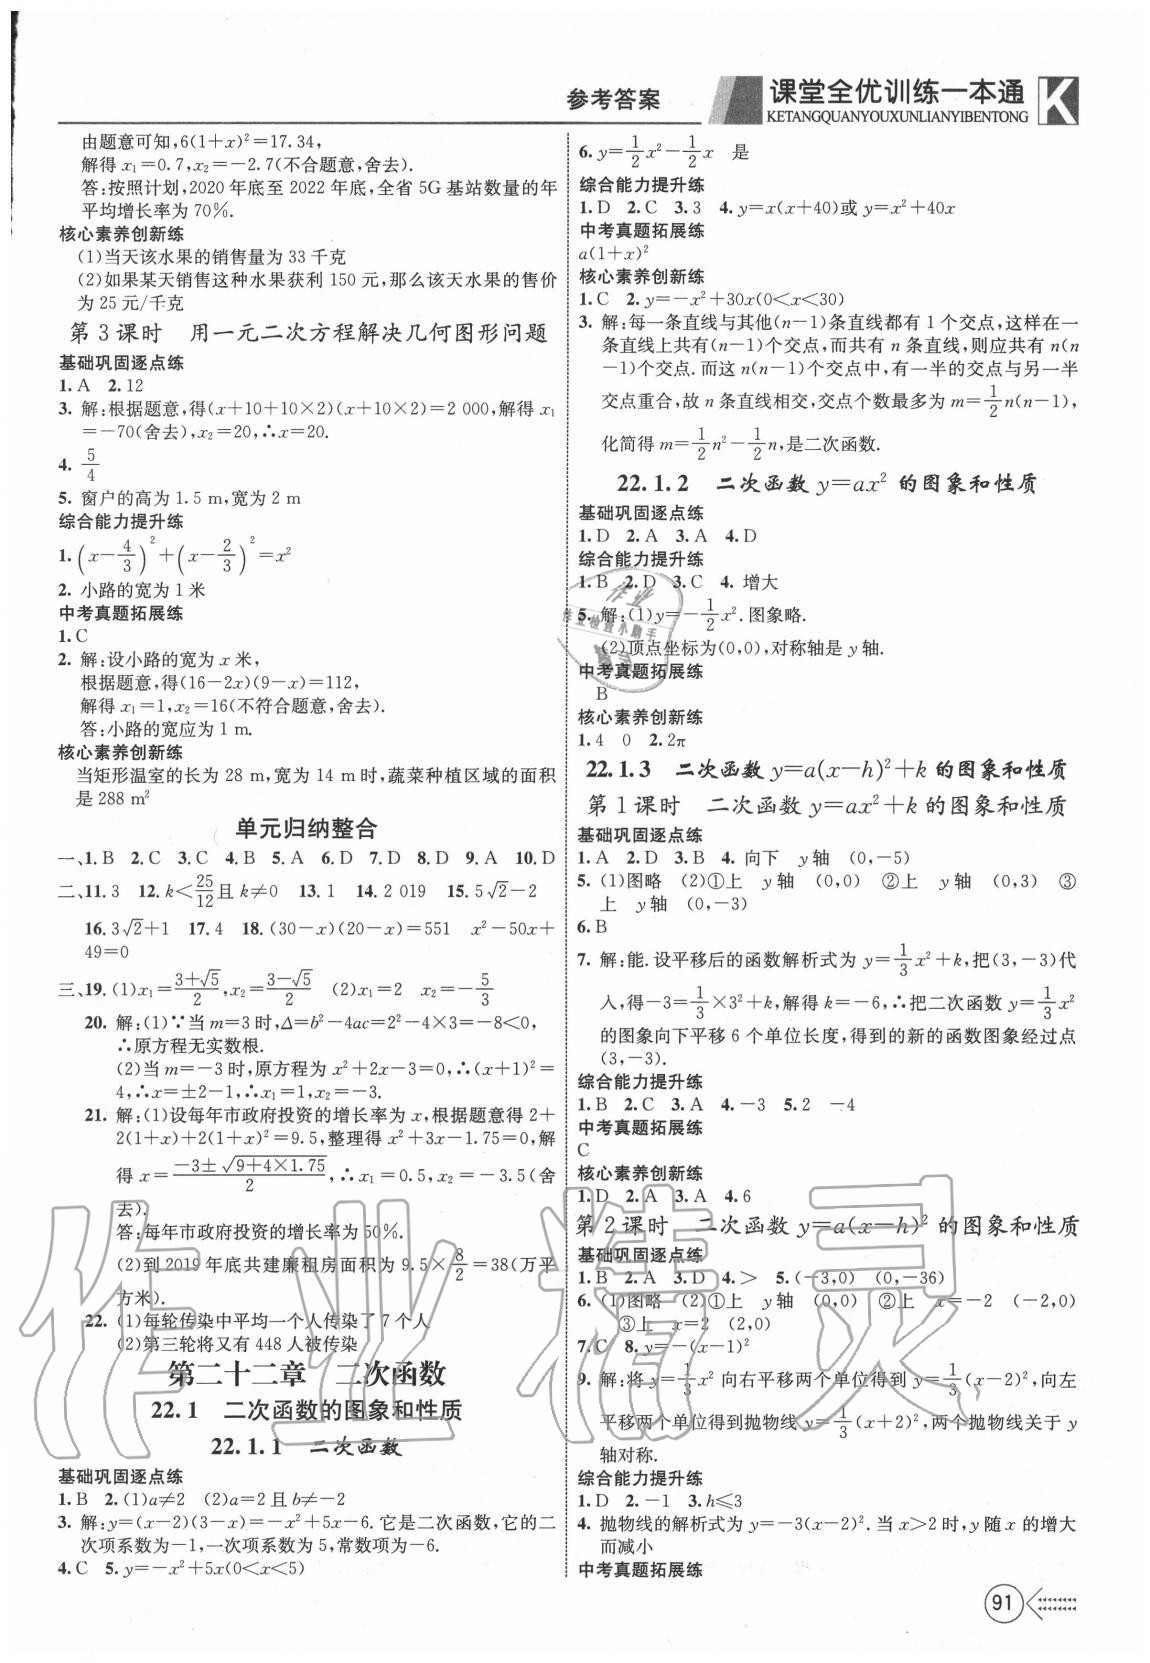 参考答案
课堂全优训练一本通
KETANGQUANYOUXUNLIANYIBENTONG
K
由题意可知,6(1+x)²=17.34,
解得 x₁=0.7,x₂=-2.7(不合题意,舍去).
答:按照计划,2020 年底至 2022 年底,全省 5G 基站数量的年
平均增长率为 70%.
核心素养创新练
(1)当天该水果的销售量为 33 千克
(2)如果某天销售这种水果获利 150 元,那么该天水果的售价
为 25 元/千克
第 3 课时 用一元二次方程解决几何图形问题
基础巩固逐点练
1. A 2. 12
3. 解:根据题意,得(x+10+10×2)(x+10×2)=2 000,解得 x₁
=-70(舍去),x₂=20,∴x=20.
4. 5/4
5. 窗户的高为 1.5 m,宽为 2 m
综合能力提升练
1. (x-4/3)²+(x-2/3)²=x²
2. 小路的宽为 1 米
中考真题拓展练
1. C
2. 解:设小路的宽为 x 米,
根据题意,得(16-2x)(9-x)=112,
解得 x₁=1,x₂=16(不符合题意,舍去).
答:小路的宽应为 1 m.
核心素养创新练
当矩形温室的长为 28 m,宽为 14 m 时,蔬菜种植区域的面积
是 288 m²
单元归纳整合
一、1. B 2. C 3. C 4. B 5. A 6. D 7. D 8. D 9. A 10. D
二、11. 3 12. k<25/12且 k≠0 13. 1 14. 2 019 15. 5√2-2
16. 3√2+1 17. 4 18. (30-x)(20-x)=551 x²-50x+
49=0
三、19. (1)x₁=(3+√5)/2,x₂=(3-√5)/2 (2)x₁=2 x₂=-5/3
20. 解:(1)∵当 m=3 时,Δ=b²-4ac=2²-4×3=-8<0,
∴原方程无实数根.
(2)当 m=-3 时,原方程为 x²+2x-3=0,∴(x+1)²=
4,∴x=±2-1,∴x₁=1,x₂=-3.
21. 解:(1)设每年市政府投资的增长率为 x,根据题意得 2+
2(1+x)+2(1+x)²=9.5,整理得 x²+3x-1.75=0,解
得 x=(-3±√(9+4×1.75))/2,∴x₁=0.5,x₂=-3.5(舍
去).
答:每年市政府投资的增长率为 50%.
(2)到 2019 年底共建廉租房面积为 9.5×8/2=38(万平
方米).
22. (1)每轮传染中平均一个人传染了 7 个人
(2)第三轮将又有 448 人被传染
第二十二章 二次函数
22.1 二次函数的图象和性质
22.1.1 二次函数
基础巩固逐点练
1. B 2. (1)a≠2 (2)a=2 且 b≠-2
3. 解:y=(x-2)(3-x)=-x²+5x-6. 它是二次函数,它的二
次项系数为-1,一次项系数为 5,常数项为-6.
4. C 5. y=-x²+5x(0<x<5)
6. y=1/2x²-1/2x 是
综合能力提升练
1. D 2. C 3. 3 4. y=x(x+40)或 y=x²+40x
中考真题拓展练
a(1+x)²
核心素养创新练
1. C 2. y=-x²+30x(0<x<30)
3. 解:每一条直线与其他(n-1)条直线都有 1 个交点,这样在一
条直线上共有(n-1)个交点,而共有 n 条直线,则应共有 n(n
-1)个交点. 而这 n(n-1)个交点中,有一半的交点与另一半
交点重合,故 n 条直线相交,交点个数最多为 m=1/2n(n-1),
化简得 m=1/2n²-1/2n,是二次函数.
22.1.2 二次函数 y=ax² 的图象和性质
基础巩固逐点练
1. D 2. A 3. A 4. D
综合能力提升练
1. B 2. D 3. C 4. 增大
5. 解:(1)y=-1/2x². 图象略.
(2)顶点坐标为(0,0),对称轴是 y 轴.
中考真题拓展练
B
核心素养创新练
1. 4 0 2. 2π
22.1.3 二次函数 y=a(x-h)²+k 的图象和性质
第 1 课时 二次函数 y=ax²+k 的图象和性质
基础巩固逐点练
1. A 2. D 3. B 4. 向下 y 轴 (0,-5)
5. (1)图略 (2)①上 y 轴 (0,0) ②上 y 轴 (0,3) ③
上 y 轴 (0,-3)
6. B
7. 解:能. 设平移后的函数解析式为 y=1/3x²+k,把(3,-3)代
入,得-3=1/3×3²+k,解得 k=-6,∴把二次函数 y=1/3x²
的图象向下平移 6 个单位长度,得到的新的函数图象经过点
(3,-3).
综合能力提升练
1. B 2. C 3. A 4. -3 5. 2 -4
中考真题拓展练
C
核心素养创新练
1. D 2. A 3. A 4. 6
第 2 课时 二次函数 y=a(x-h)² 的图象和性质
基础巩固逐点练
1. B 2. A 3. D 4. > 5. (-3,0) (0,-36)
6. (1)图略 (2)①上 y 轴 (0,0) ②上 x=-2 (-2,0)
③上 x=2 (2,0)
7. C 8. y=-(x-1)²
9. 解:将 y=1/3x² 向右平移两个单位得到 y=1/3(x-2)²,向左
平移两个单位得到抛物线 y=1/3(x+2)²,两个抛物线关于 y
轴对称.
综合能力提升练
1. D 2. -1 3. h≤3
4. 抛物线的解析式为 y=-3(x-2)². 当 x>2 时,y 随 x 的增大
而减小
中考真题拓展练
91
作业精灵
作业
作业检查小助手